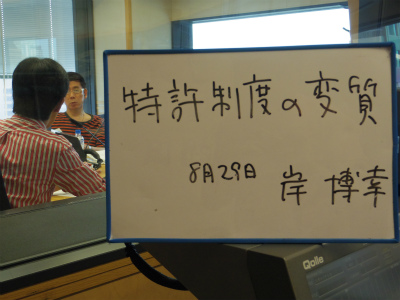 特許制度の変質
8月29日
岸 博幸
Qolle